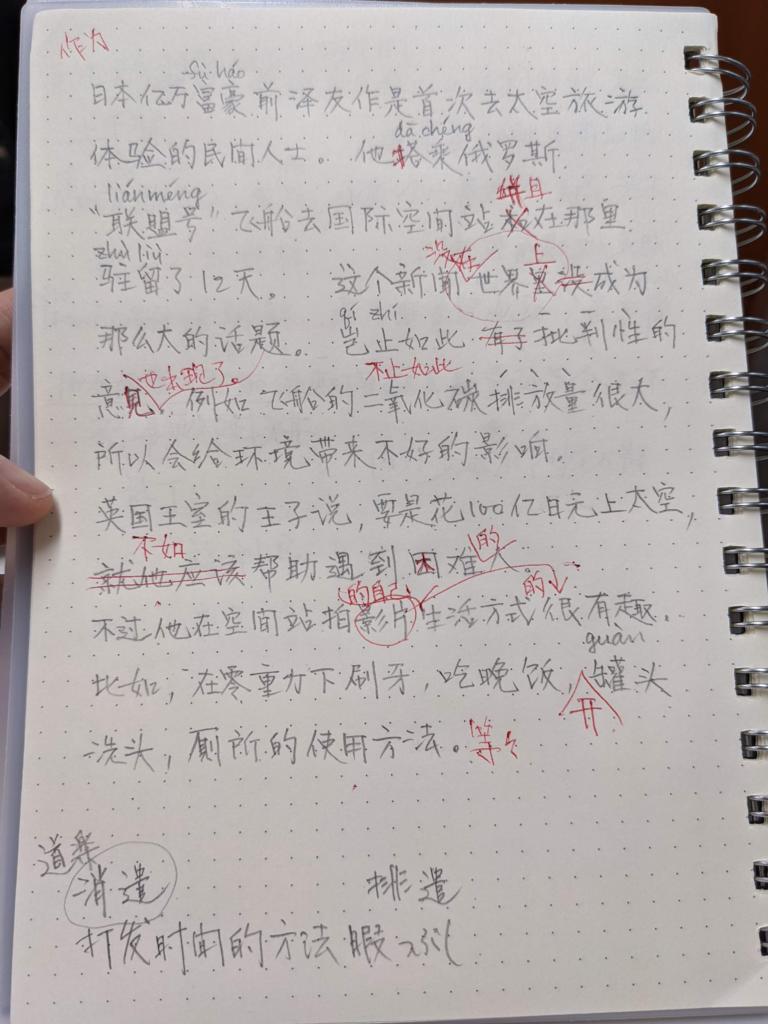 作为
fù háo
日本亿万富豪前泽友作是首次去太空旅游
dā chéng
体验的民间人士。 他搭乘俄罗斯
liánméng
并且
“联盟号”飞船去国际空间站 在那里
zhù liú
没在
上
驻留了12天。 这个新闻世界 没成为
qǐ zhǐ
那么大的话题。 岂止如此 有了批判性的
也出现了。
不止如此
意见、例如飞船的二氧化碳排放量很大,
所以会给环境带来不好的影响.
英国王室的王子说,要是花100亿日元上太空,
不如
的
就他应该帮助遇到困难人。
的自己
的
不过他在空间站拍影片生活方式很有趣.
guàn
比如,在零重力下刷牙,吃晚饭,罐头
开
洗头,厕所的使用方法。等々
道楽
消遣 排遣
打发时间的方法 暇つぶし